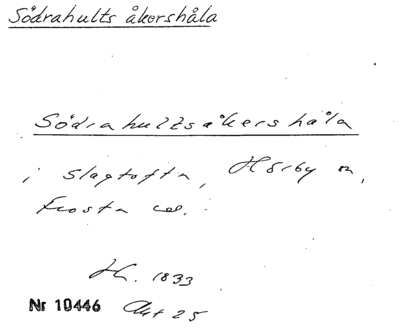 Södrahults åkershåla
Södrahultsåkershåla
i Slagtofta, Hörby sn,
Frosta
H. 1833
Nr 10446 Akt 25